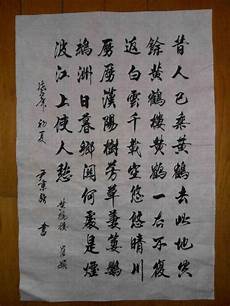 昔人已乘黄鶴去此地空
餘黄鶴樓黄鶴一去不復
返白雲千載空悠悠晴川
歷歷漢陽樹芳草萋萋鸚
鵡洲日暮鄉關何處是煙
波江上使人愁
黄鶴樓 崔顥
初夏
書